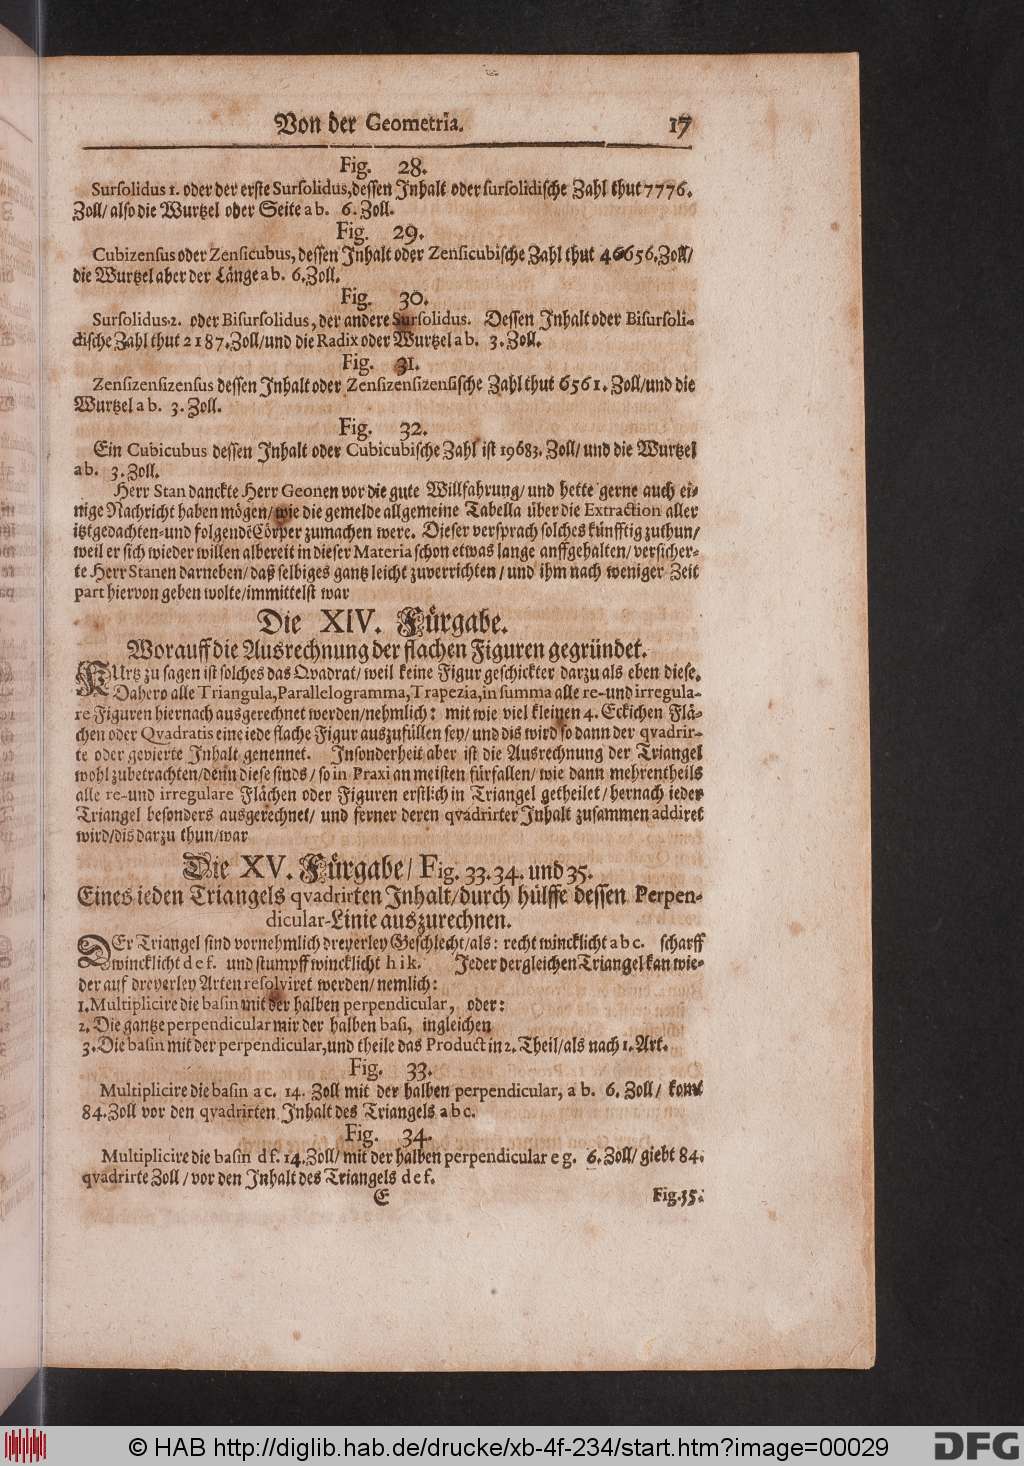 Von der Geometria. 17
Fig. 28.
Sursolidus 1. oder der erste Sursolidus, dessen Inhalt oder sursolidische Zahl thut 7776.
Zoll/ also die Wurtzel oder Seite a b. 6. Zoll.
Fig. 29.
Cubizensus oder Zensicubus, dessen Inhalt oder Zensicubische Zahl thut 46656. Zoll/
die Wurtzel aber der Länge a b. 6. Zoll.
Fig. 30.
Sursolidus 2. oder Bisursolidus, der andere Sursolidus. Dessen Inhalt oder Bisursoli-
dische Zahl thut 2187. Zoll/ und die Radix oder Wurtzel a b. 3. Zoll.
Fig. 31.
Zensizensizensus dessen Inhalt oder Zensizensizensische Zahl thut 6561. Zoll/ und die
Wurtzel a b. 3. Zoll.
Fig. 32.
Ein Cubicubus dessen Inhalt oder Cubicubische Zahl ist 19683. Zoll/ und die Wurtzel
a b. 3. Zoll.
Herr Stan danckte Herr Geonen vor die gute Willfahrung/ und hette gerne auch ei-
nige Nachricht haben mögen/ wie die gemelde allgemeine Tabella über die Extraction aller
itztgedachten- und folgendē Cörper zumachen were. Dieser versprach solches künfftig zuthun/
weil er sich wieder willen albereit in dieser Materia schon etwas lange auffgehalten/ versicher-
te Herr Stanen darneben/ daß selbiges gantz leicht zuverrichten/ und ihm nach weniger Zeit
part hiervon geben wolte/ immittelst war
Die XIV. Fürgabe.
Worauff die Ausrechnung der flachen Figuren gegründet.
KUrtz zu sagen ist solches das Qvadrat/ weil keine Figur geschickter darzu als eben diese.
Dahero alle Triangula, Parallelogramma, Trapezia, in summa alle re- und irregula-
re Figuren hiernach ausgerechnet werden/ nehmlich: mit wie viel kleinen 4. Eckichen Flä-
chen oder Qvadratis eine iede flache Figur auszufüllen sey/ und dis wird so dann der qvadrir-
te oder gevierte Inhalt genennet. Insonderheit aber ist die Ausrechnung der Triangel
wohl zubetrachten/ denn diese sinds/ so in Praxi am meisten fürfallen/ wie dann mehrentheils
alle re- und irregulare Flächen oder Figuren erstlich in Triangel getheilet/ hernach ieder
Triangel besonders ausgerechnet/ und ferner deren qvadrirter Inhalt zusammen addiret
wird/ dis darzu thun/ war
Die XV. Fürgabe/ Fig. 33. 34. und 35.
Eines ieden Triangels qvadrirten Inhalt/ durch hülffe dessen Perpen-
dicular-Linie auszurechnen.
DEr Triangel sind vornehmlich dreyerley Geschlecht/ als: recht wincklicht a b c. scharff
wincklicht d e f. und stumpff wincklicht h i k. Jeder dergleichen Triangel kan wie-
der auf dreyerley Arten resolviret werden/ nemlich:
1. Multiplicire die basin mit der halben perpendicular, oder:
2. Die gantze perpendicular mir der halben basi, ingleichen
3. Die basin mit der perpendicular, und theile das Product in 2. Theil/ als nach 1. Art.
Fig. 33.
Multiplicire die basin a c. 14. Zoll mit der halben perpendicular, a b. 6. Zoll/ komt
84. Zoll vor den qvadrirten Inhalt des Triangels a b c.
Fig. 34.
Multiplicire die basin d f. 14. Zoll/ mit der halben perpendicular e g. 6. Zoll/ giebt 84.
qvadrirte Zoll/ vor den Inhalt des Triangels d e f.
E Fig. 35.
© HAB http://diglib.hab.de/drucke/xb-4f-234/start.htm?image=00029 DFG